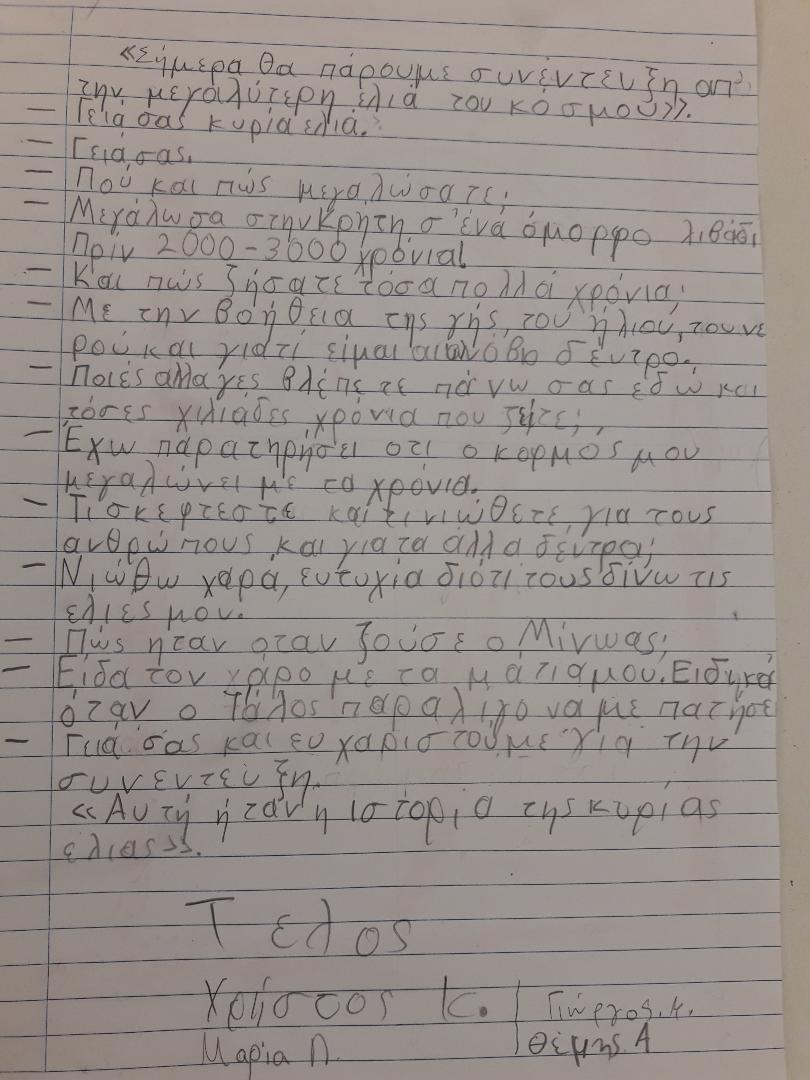 «Σήμερα θα πάρουμε συνέντευξη απ'
την μεγαλύτερη ελιά του κόσμου».
– Γειά σας κυρία ελιά.
– Γειά σας.
– Πού και πώς μεγαλώσατε;
– Μεγάλωσα στην Κρήτη σ'ένα όμορφο λιβάδι
πρίν 2000-3000 χρόνια!
– Και πώς ζήσατε τόσα πολλά χρόνια;
– Με την βοήθεια της γής, του ήλιου, του νε
ρού και γιατί είμαι αιωνόβιο δέντρο.
– Ποιές αλλαγές βλέπετε πάνω σας εδώ και
τόσες χιλιάδες χρόνια που ζείτε;
– Έχω παρατηρήσει οτι ο κορμός μου
μεγαλώνει με τα χρόνια.
– Τι σκέφτεστε και τι νιώθετε, για τους
ανθρώπους, και για τα άλλα δέντρα;
– Νιώθω χαρά, ευτυχία διότι τους δίνω τις
ελιές μου.
– Πώς ήταν οταν ζούσε ο Μίνωας;
– Είδα τον χάρο με τα μάτια μου. Ειδικά
όταν ο Τάλος παραλιγο να με πατήσε
– Γειά σας και ευχαριστούμε για την
συνεντευξη.
«Αυτή ήταν η ιστορία της κυρίας
ελιας».
Τελος
Χρήστος Κ. Γιώργος. κ.
Μαρία Π. Θέμης. Α